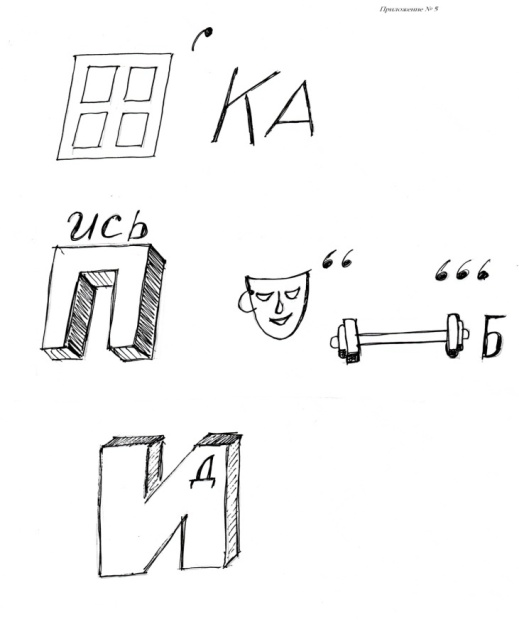 Приложение № 8
КА
ИСЬ
П
Б
И
Д